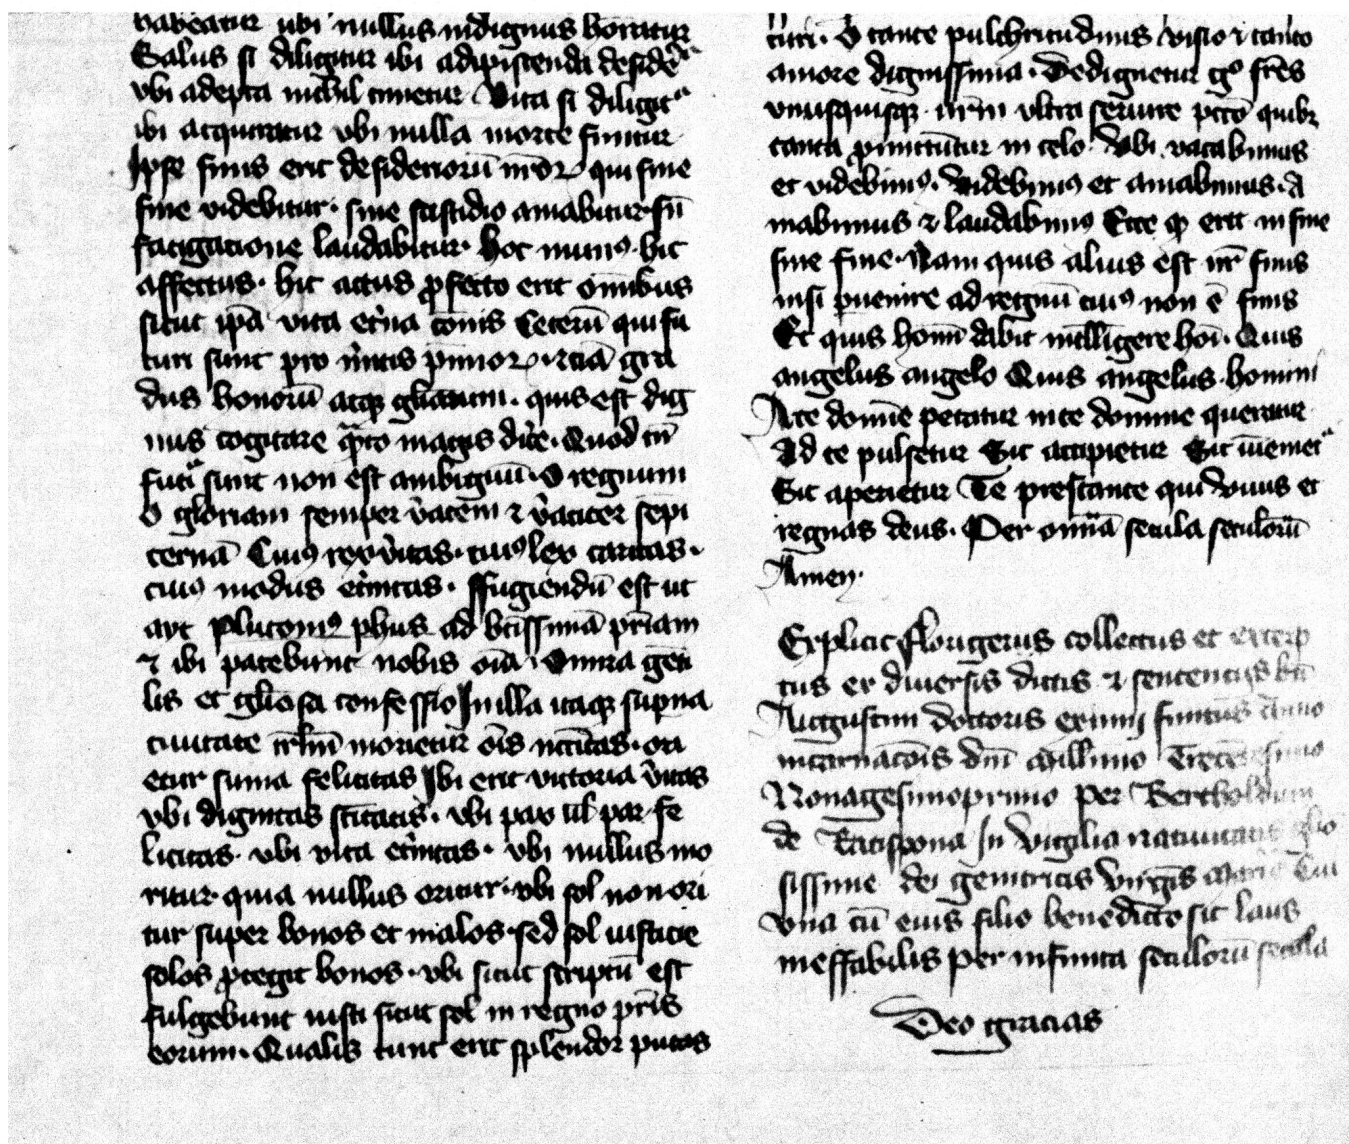 habeatur ubi nullus indignus honoratur
Salus si diligitur ibi adipiscenda desidēᵃ
vbi adepta nichil timetur Vita si diligitᵃ
ibi acquiratur vbi nulla morte finitur
Ipse finis erit desideriorū nr̄oꝝ qui sine
fine videbitur· sine fastidio amabitur sn̄
fatigacione laudabitur· hoc munꝰ· hic
affectus· hic actus ꝓfecto erit om̄ibus
sicut ip̄a vita et̄na cōis Ceterū qui fu
turi sunt pro m̄itis p̄mioꝝ· eciā gra
dus honorū atqꝫ gl̄iarum· quis est dig
nus cogitare q̄nto magis dic̄e· Quod tn̄
futᵃi sunt non est ambiguū· O regnum
O gloriam semper v̄acem ⁊ v̄aciter sempi
ternā Cuiꝰ rex v̄itas· cuiꝰ lex caritas·
cuiꝰ modus et̄nitas· ffugiendū est ut
ayt plutoniꝰ ph̄us ad btīssimā pr̄iam
⁊ ibi patebunt nobis oīa Omnia
lis et gl̄iosa confessio In illa itaqꝫ sup̄na
ciuitate ir̄lm̄ morietur oīs nc̄c̄itas· ori
etur suma felicitas Ibi erit victoria v̄itas
vbi dignitas sc̄itatis· vbi pax ubi pax fe
licitas· vbi vita et̄nitas· vbi nullus mo
ritur quia nullus oritur· vbi sol non ori
tur super bonos et malos· sed sol iusticie
solos ꝓtegit bonos· vbi sicut scriptū est
fulgebunt iusti sicut sol in regno pr̄is
eorum· Qualis tunc erit splendor putas
turi· O tante pulchritudinis visio ⁊ tanto
amore dignissima· Dedignetur gᵒ fr̄es
vnusquisqꝫ nr̄m vltra seruire pctō quibꝫ
tanta ꝓmittūtur in celo· Vbi vacabimus
et videbimꝰ· videbimꝰ et amabimus· A
mabimus ⁊ laudabimꝰ Ecce qd̄ erit in fine
sine fine· Nam quis alius est nr̄ finis
nisi ꝑuenire ad regnū cuiꝰ non ē finis
Et quis homī dabit intelligere hoī· Quis
angelus angelo Quis angelus· homini
A te domīe petatur in te domine queratur
Ad te pulsetur Sic accipietur Sic īuenietᵃ
Sic aperietur Te prestante qui viuis et
regnas deus· Per omīa secula seculorū
Amen·
Explicit fflorigerus collectus et excerp
tus ex diuersis dictis ⁊ sentencijs btī
Augustini doctoris eximij finitus Anno
incarnacōis dnī Millīmo Trecētesimo
Nonagesimoprimo per Bertholdum
de Ratispona In vigilia natiuitatis glio
sissime dei genitricis virgīs Marie Cui
vna cū eius filio benedicto sit laus
ineffabilis per infinita seculorū secula
Deo gracias